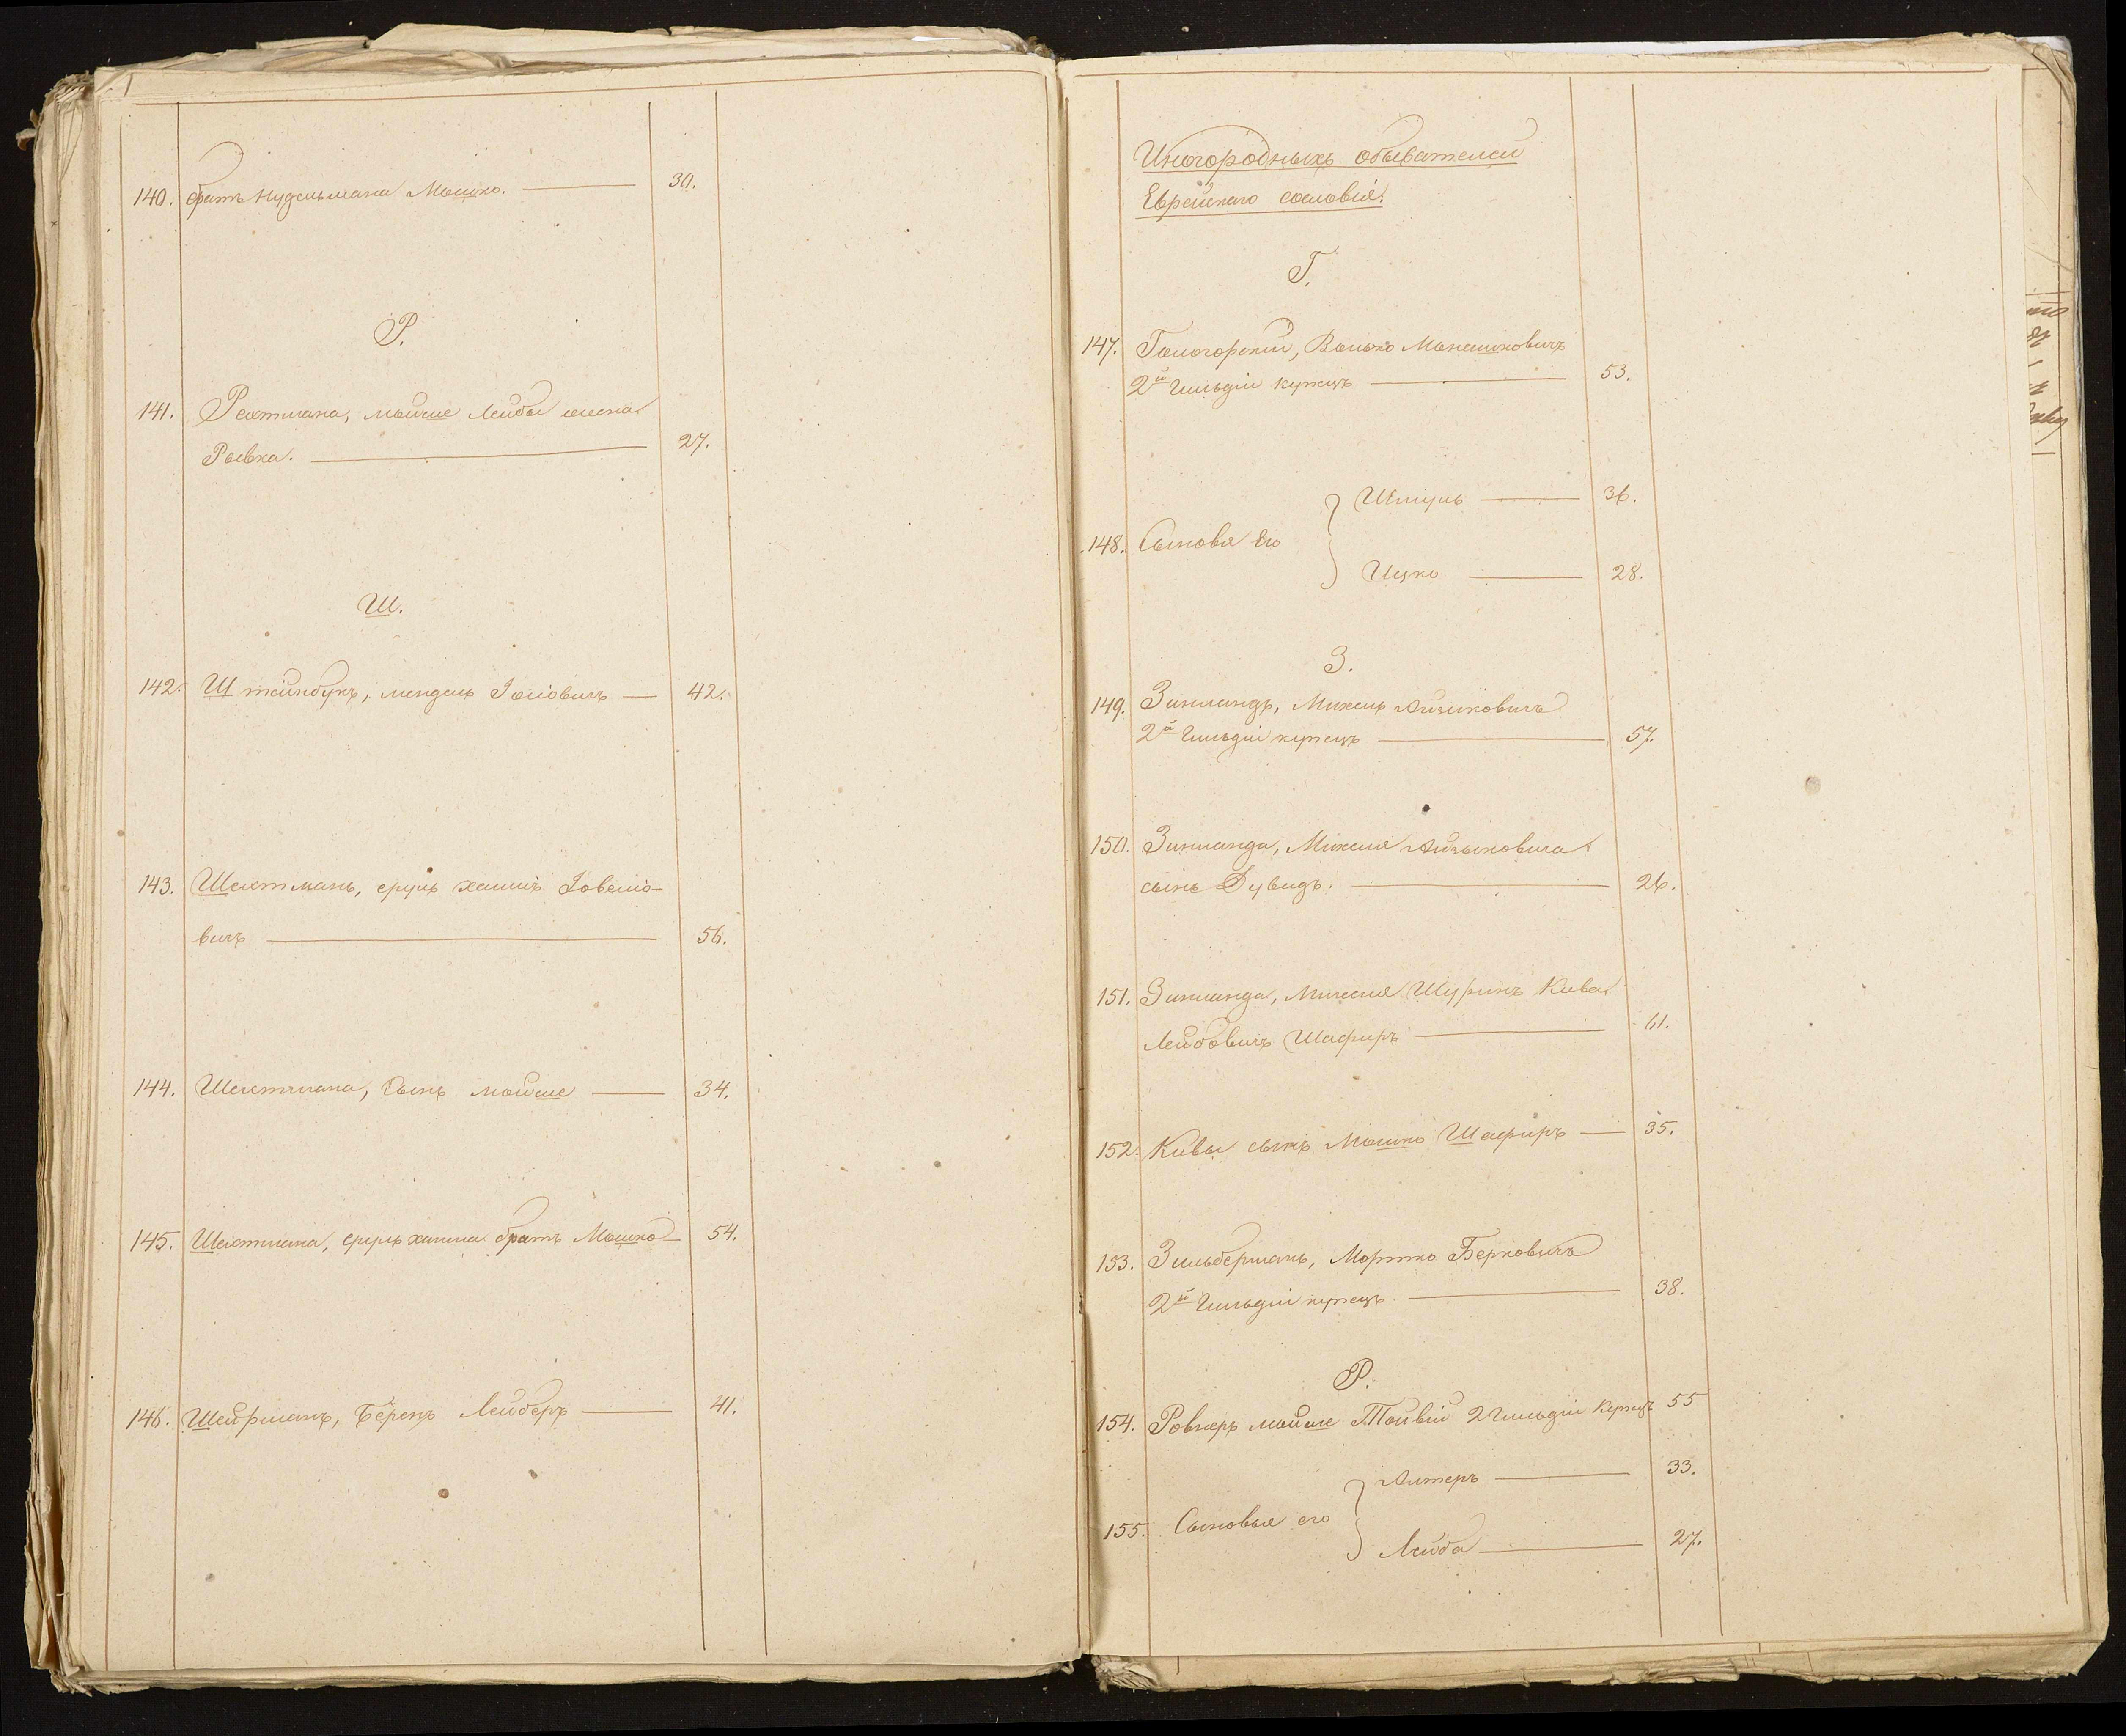 140. братъ Нудельмана Мошко. 30.
Р.
141. Рехтмана, мойше Лейбы жена
Рывка. 27.
Ш.
142. Штейнбукъ, мендель Іосіовичъ 42.
143. Шехтманъ, сруль хаимъ Іовеліо-
вичъ 56.
144. Шехтмана, Сынъ мойше 34.
145. Шехтмана, сруль хаима братъ Мошко 54.
146. Шейрманъ, Берекъ Лейберъ 41.
Иногородныхъ обывателей
Еврейскаго сословія.
Г.
147. Гологорскій, Волько Манашковичъ
2й Гильдіи купецъ 53.
Шмуль 36.
148. Сыновя Его
Ицко 28.
З.
149. Зинландъ, Михель Айзиковичъ
2й Гильдіи купецъ 57.
150. Зинланда, Михеля Айзыковича
сынъ Дувидъ. 26.
151. Зинланда, Михеля Шуринъ Кива
Лейбовичъ Шафиръ 61.
152. Кивы сынъ Мошко Шафиръ 35.
153. Зильберманъ, Мортко Берковичъ
2й Гильдіи купецъ 38.
Р.
154. Ровнеръ мойше Тойвій 2 Гильдіи Купецъ 55
Алтеръ 33.
155. Сыновья его
Лейба 27.